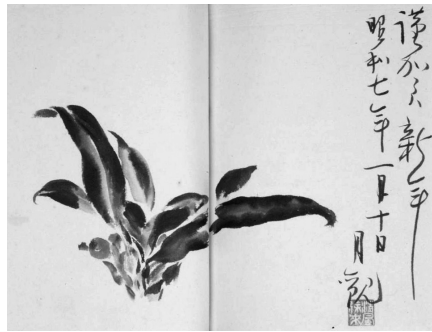 謹賀新年
昭和七年一月十日
月觀